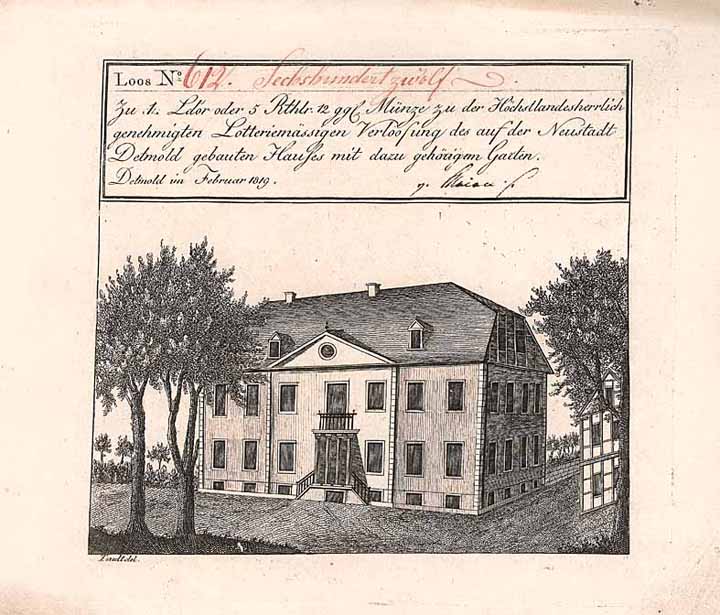 Loos No. 612. Sechshundertzwölf.
Zu .1. Ld'or oder 5 Rthlr. 12 ggl. Münze zu der Höchstlandesherrlich
genehmigten Lotteriemässigen Verloosung des auf der Neustadt
Detmold gebauten Hauses mit dazu gehörigem Garten.
Detmold im Februar 1819.